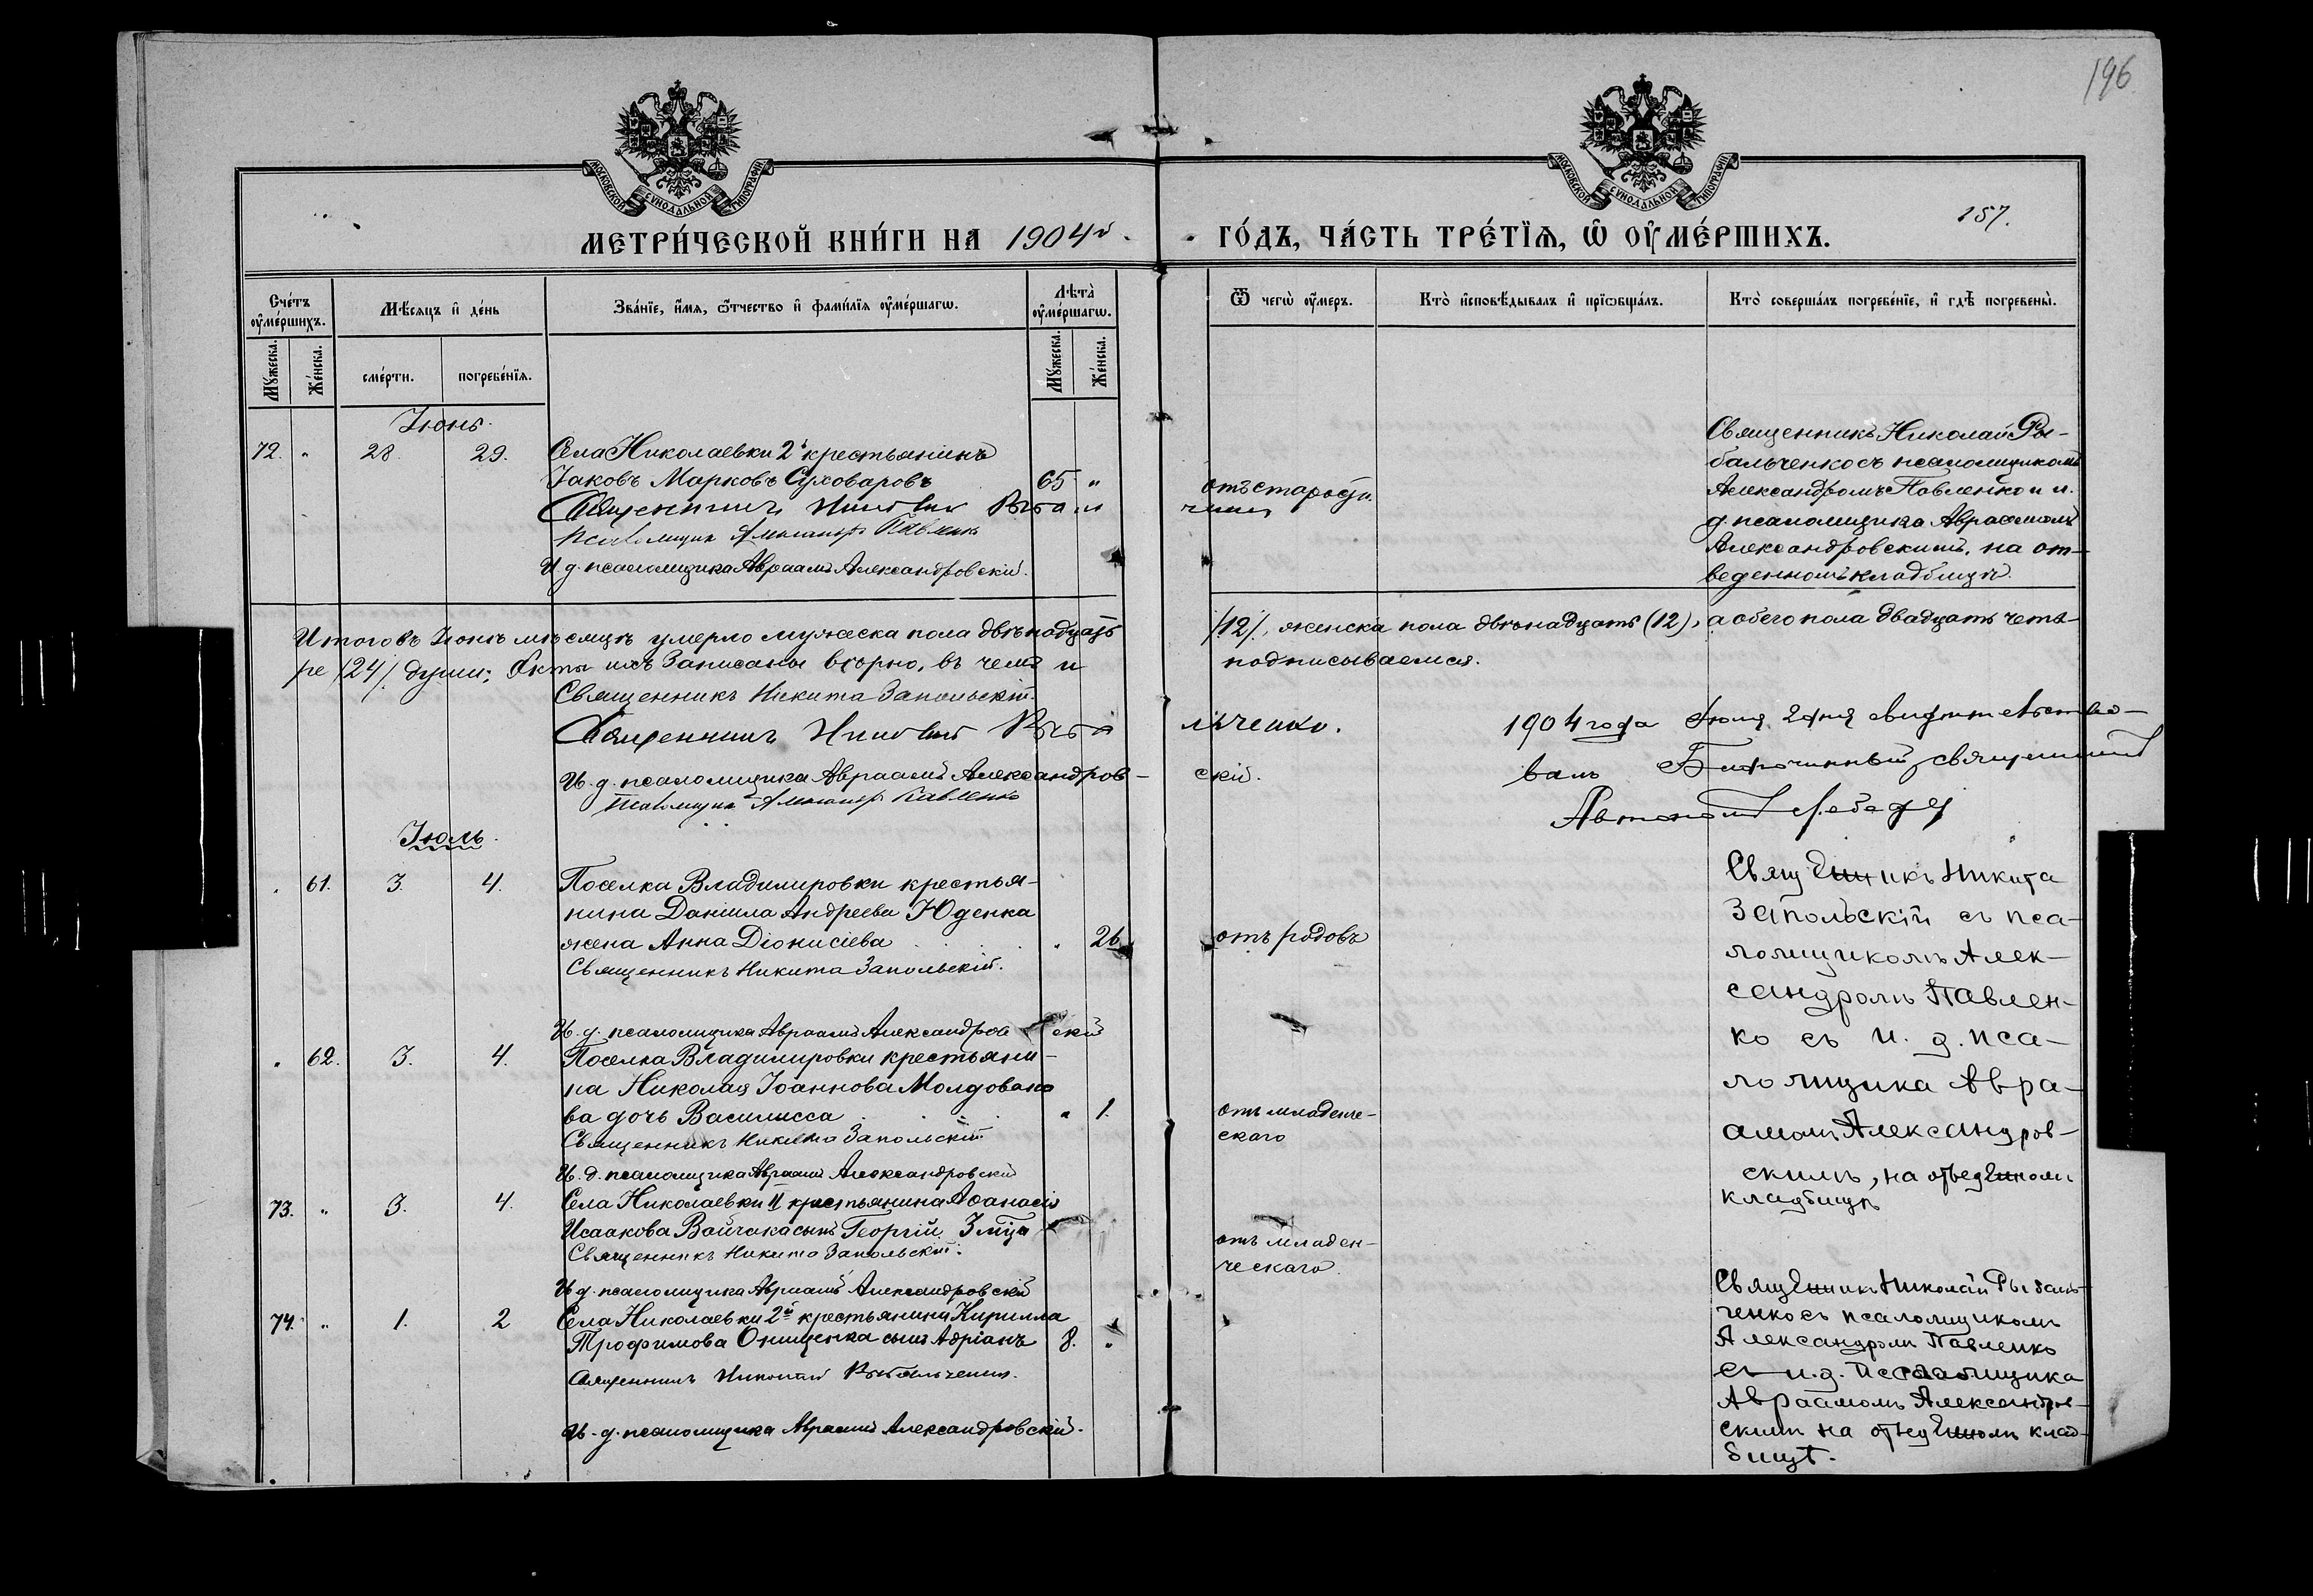 196
МОСКОВСКОЙ СѴНОДАЛЬНОЙ ТИПОГРАФІИ
МОСКОВСКОЙ СѴНОДАЛЬНОЙ ТИПОГРАФІИ
МЕТРИ́ЧЕСКОЙ КНИ́ГИ НА 1904й
ГО́ДЪ, ЧА́СТЬ ТРЕ́ТЇѦ, Ѡ ОУ҆МЕ́РШИХЪ.
157.
Сче́тъ оу҆ме́ршихъ.
Мѣ́сѧцъ и҆ де́нь
Зва́нїе, и҆́мѧ, ѻ҆́тчество и҆ фами́лїѧ оу҆ме́ршагѡ.
Лѣта̀ оу҆ме́ршагѡ.
Ѿ чегѡ̀ оу҆́меръ.
Кто̀ и҆сповѣ́дывалъ и҆ прїѡбща́лъ.
Кто̀ соверша́лъ погребе́нїе, и҆ гдѣ̀ погребены̀.
Мꙋ́жеска.
Же́нска.
сме́рти.
погребе́нїѧ.
Мꙋ́жеска.
Же́нска.
Іюнь.
72. " 28. 29. Села Николаевки 2й крестьянинъ
Іаковъ Марковъ Суховаровъ 65 "
отъ старости
Священникъ Николай Рыбал
Псаломщик Александръ Павленко
И д. псаломщика Авраамъ Александровскій.
Священникъ Николай Ры-
бальченко съ псаломщикомъ
Александромъ Павленко и и.
д. псаломщика Авраамомъ
Александровскимъ, на от-
веденномъ кладбищѣ.
Итого въ Іюнѣ мѣсяцѣ умерло мужеска пола двѣнадцать /12/, женска пола двѣнадцать (12), а обего пола двадцать четы-
ре /24/ души; Акты ихъ записаны вѣрно, въ чемъ и подписываемся.
Священникъ Никита Запольскій.
Священникъ Николай Рыбальченко.
И. д. псаломщика Авраамъ Александровскій.
Псаломщик Александръ Павленко
1904 года Іюля 2 дня свидѣтельство-
валъ Благочинный священникъ
Автономъ Лебедев
Іюль.
. 61. 3. 4. Поселка Владимировки крестья-
нина Даніила Андреева Юденка
жена Анна Діонисіева . 26
отъ родовъ
Священникъ Никита Запольскій.
И. д. псаломщика Авраамъ Александровскій
Священникъ Никита
Запольскій съ пса-
ломщикомъ Алек-
сандромъ Павлен-
ко съ и. д. пса-
ломщика Авра-
амомъ Александров-
скимъ, на отведенномъ
кладбищѣ
. 62. 3. 4. Поселка Владимировки крестьяни-
на Николая Іоаннова Молдовано
ва дочь Василисса " 1.
отъ младенче-
скаго
Священникъ Никита Запольскій
И. д. псаломщика Авраамъ Александровскій
73. " 3. 4. Села Николаевки II крестьянина Аѳанасія
Исаакова Вайчака сынъ Георгій 3 мца
отъ младен-
ческаго
Священникъ Никита Запольскій.
И д. псаломщика Авраамъ Александровскій
74. " 1. 2 Села Николаевки 2й крестьянина Кирилла
Трофимова Онищенка сынъ Адріанъ 8. "
Священникъ Николай Рыбальченко.
И. д. псаломщика Авраамъ Александровскій.
Священникъ Николай Рыбаль-
ченко съ псаломщикомъ
Александромъ Павленко
съ и. д. псаломщика
Авраамомъ Александров-
скимъ на отведенномъ клад-
бищѣ.